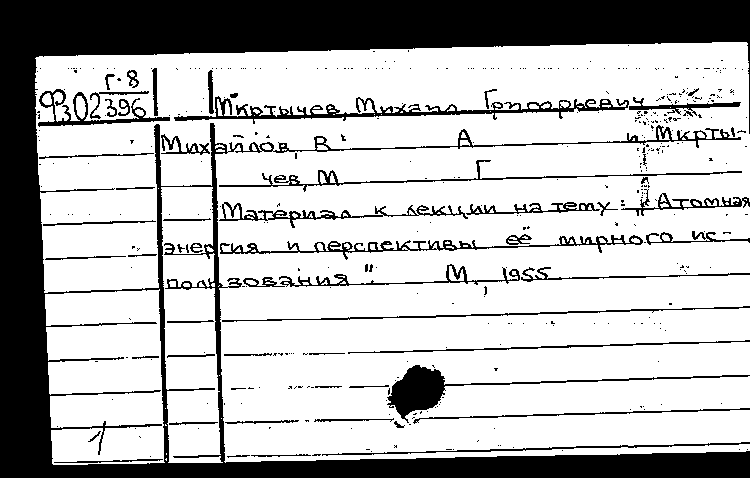 Г-8
Ф302 396
Мкртычев, Михаил Григорьевич
Михайлов, В. А и Мкрты-
чев, М Г
Материал к лекции на тему: "Атомная
энергия и перспективы её мирного ис-
пользования". М., 1955
1